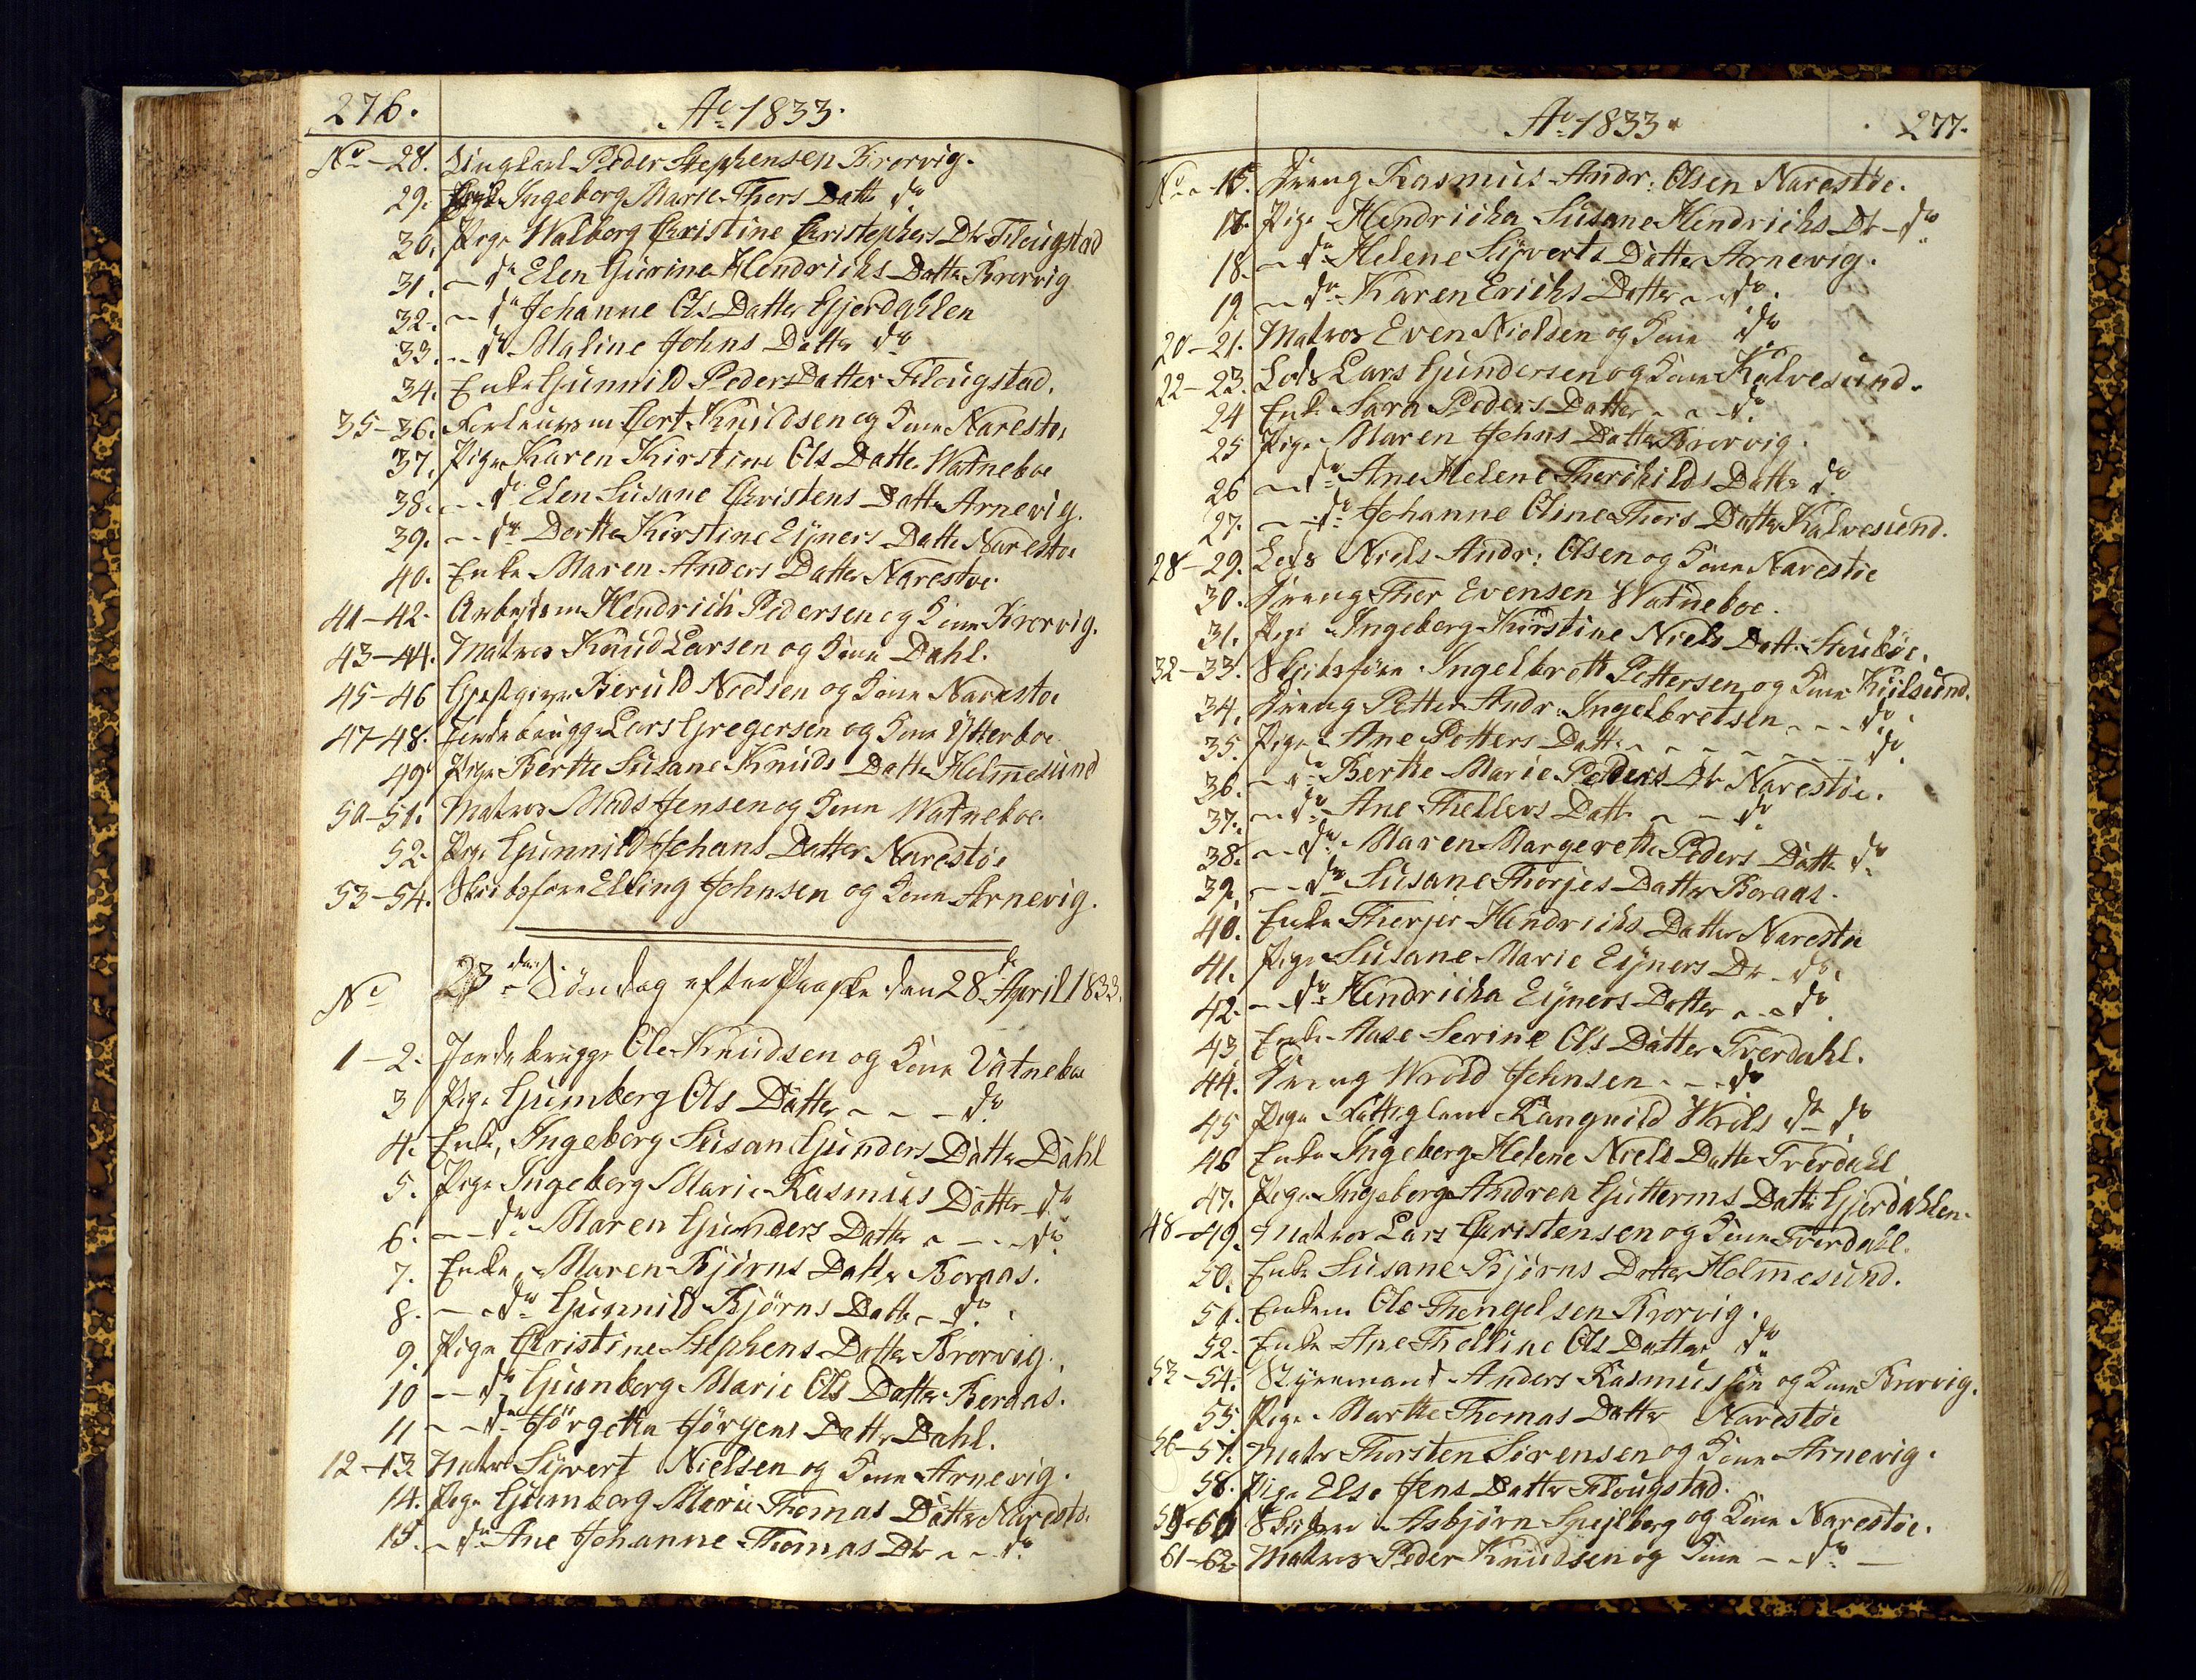 276.
Ao 1833.
No - 28. Ungkarl Peder Stephensen Krorvig.
29. Pige Ingeborg Marie Thors Datte do
30. Pige Walborg Christine Christophers Dtr Flougstad
31. - do Elen Gurine Hendrichs Datter Krorvig
32. - do Johanne Ols Datter Gjerdahlen
33. - do Maline Johns Datter do
34. Enke Gunnild Peders Datter Flougstad.
35-36. Cort Knudsen og Kone Narestøe
37. Pige Karen Kirstine Ols Datte Watneboe
38. - do Elen Susane Christens Datte Arnevig.
39. - do Dorthe Kirstine Eyners Datte Narestøe
40. Enke Maren Anders Datter Narestøe.
41-42. Arbejdsm Hendrich Pedersen og Kone Krorvig.
43-44. Matros Knud Larsen og Kone Dahl.
45-46 Gjestgiver Beruld Nielsen og Kone Narestøe
47-48. Jordbrugger Lars Gregersen og Kone Ytterboe
49. Pige Berthe Susane Knuds Datte Holmesund
50-51. Matros Mads Jensen og Kone Watneboe.
52. Pige Gunnild Johans Datter Narestøe
53-54. Skibsføre Elling Johnsen og Kone Arnevig.
No 3die Søndag efter Paaske den 28de April 1833.
1-2. Jordebrugger Ole Knudsen og Kone Vatneboe
3 Pige Gumborg Ols Datter - - - do
4. Enke, Ingeborg Susan Gunders Datter Dahl
5. Pige Ingeborg Marie Rasmus Datter do
6. - do Maren Gunders Datter - - - do
7. Enke, Maren Bjørns Datter Boraas.
8. - do Gunnild Bjørns Datte - do
9. Pige Christine Stephens Datter Krorvig.
10 - do Gumborg Marie Ols Datter Boraas.
11 - do Jørgethe Jørgens Datter Dahl.
12-13. Matros Syvert Nielsen og Kone Arnevig.
14. Pige Gumborg Marie Thomas Datter Narestø.
15. - do Ane Johanne Thomas Dtr - - do
Ao 1833.
277.
No - 16. Dreng Rasmus Andr: Olsen Narestøe.
17. Pige Hendricha Susane Hendrichs Dtr - do
18. - do Helene Syverts Datter Arnevig.
19. - do Karen Erichs Datter - do.
20-21. Matros Even Nielsen og Kone do
22-23. Lods Lars Gundersen og Kone Kalvesund.
24 Enke Sara Peders Datter - - do
25 Pige Maren Johns Datter Krorvig.
26 - do Ane Helene Therkilds Datte do
27. - do Johanne Oline Thors Datter Kalvesund.
28-29. Lods Niels Andr: Olsen og Kone Narestøe
30. Dreng Thor Evensen Watneboe.
31. Pige Ingeborg Kirstine Niels Datt. Stuebøe.
32-33. Skibsføre Ingelbrett Pettersen og Kone Kiilsund.
34. Dreng Petter Andr: Ingelbretsen - - - do
35. Pige Ane Petters Datt. - - - - - - do
36. - do Berthe Marie Peders Dtr Narestøe.
37. - do Ane Thellevs Datt. - - do
38. - do Maren Margrethe Peders Datte do
39. - do Susane Therjes Datter Boraas.
40. Enke Therjer Hendrichs Datter Narestøe
41. Pige Susane Marie Eyners Dtr - do.
42. - do Hendricha Eyners Datter - - do
43. Enke Aase Serine Ols Datter Tverdahl.
44. Dreng Wrold Johnsen - - - do
45 Pige Fattiglem Rangnild Wrols do do
46 Enke Ingeborg Helene Niels Datte Tverdahl
47. Pige Ingeborg Andrea Gutterms Datte Gjerdahlen.
48-49. Matros Lars Christensen og Kone Tverdahl.
50. Enke Susane Bjørns Datter Holmesund.
51. Enkem Ole Thengelsen Krorvig.
52. Enke Ane Thelline Ols Datter do
53-54. Styrmand Anders Rasmussen og Kone Krorvig.
55. Pige Marthe Thomas Datter Narestøe
56-57. Matr Thorsten Sørensen og Kone Arnevig.
58. Pige Else Jens Datter Flougstad.
59-60 Asbjørn Spejlberg og Kone Narestøe.
61-62. Matros Peder Knudsen og Kone - - do -